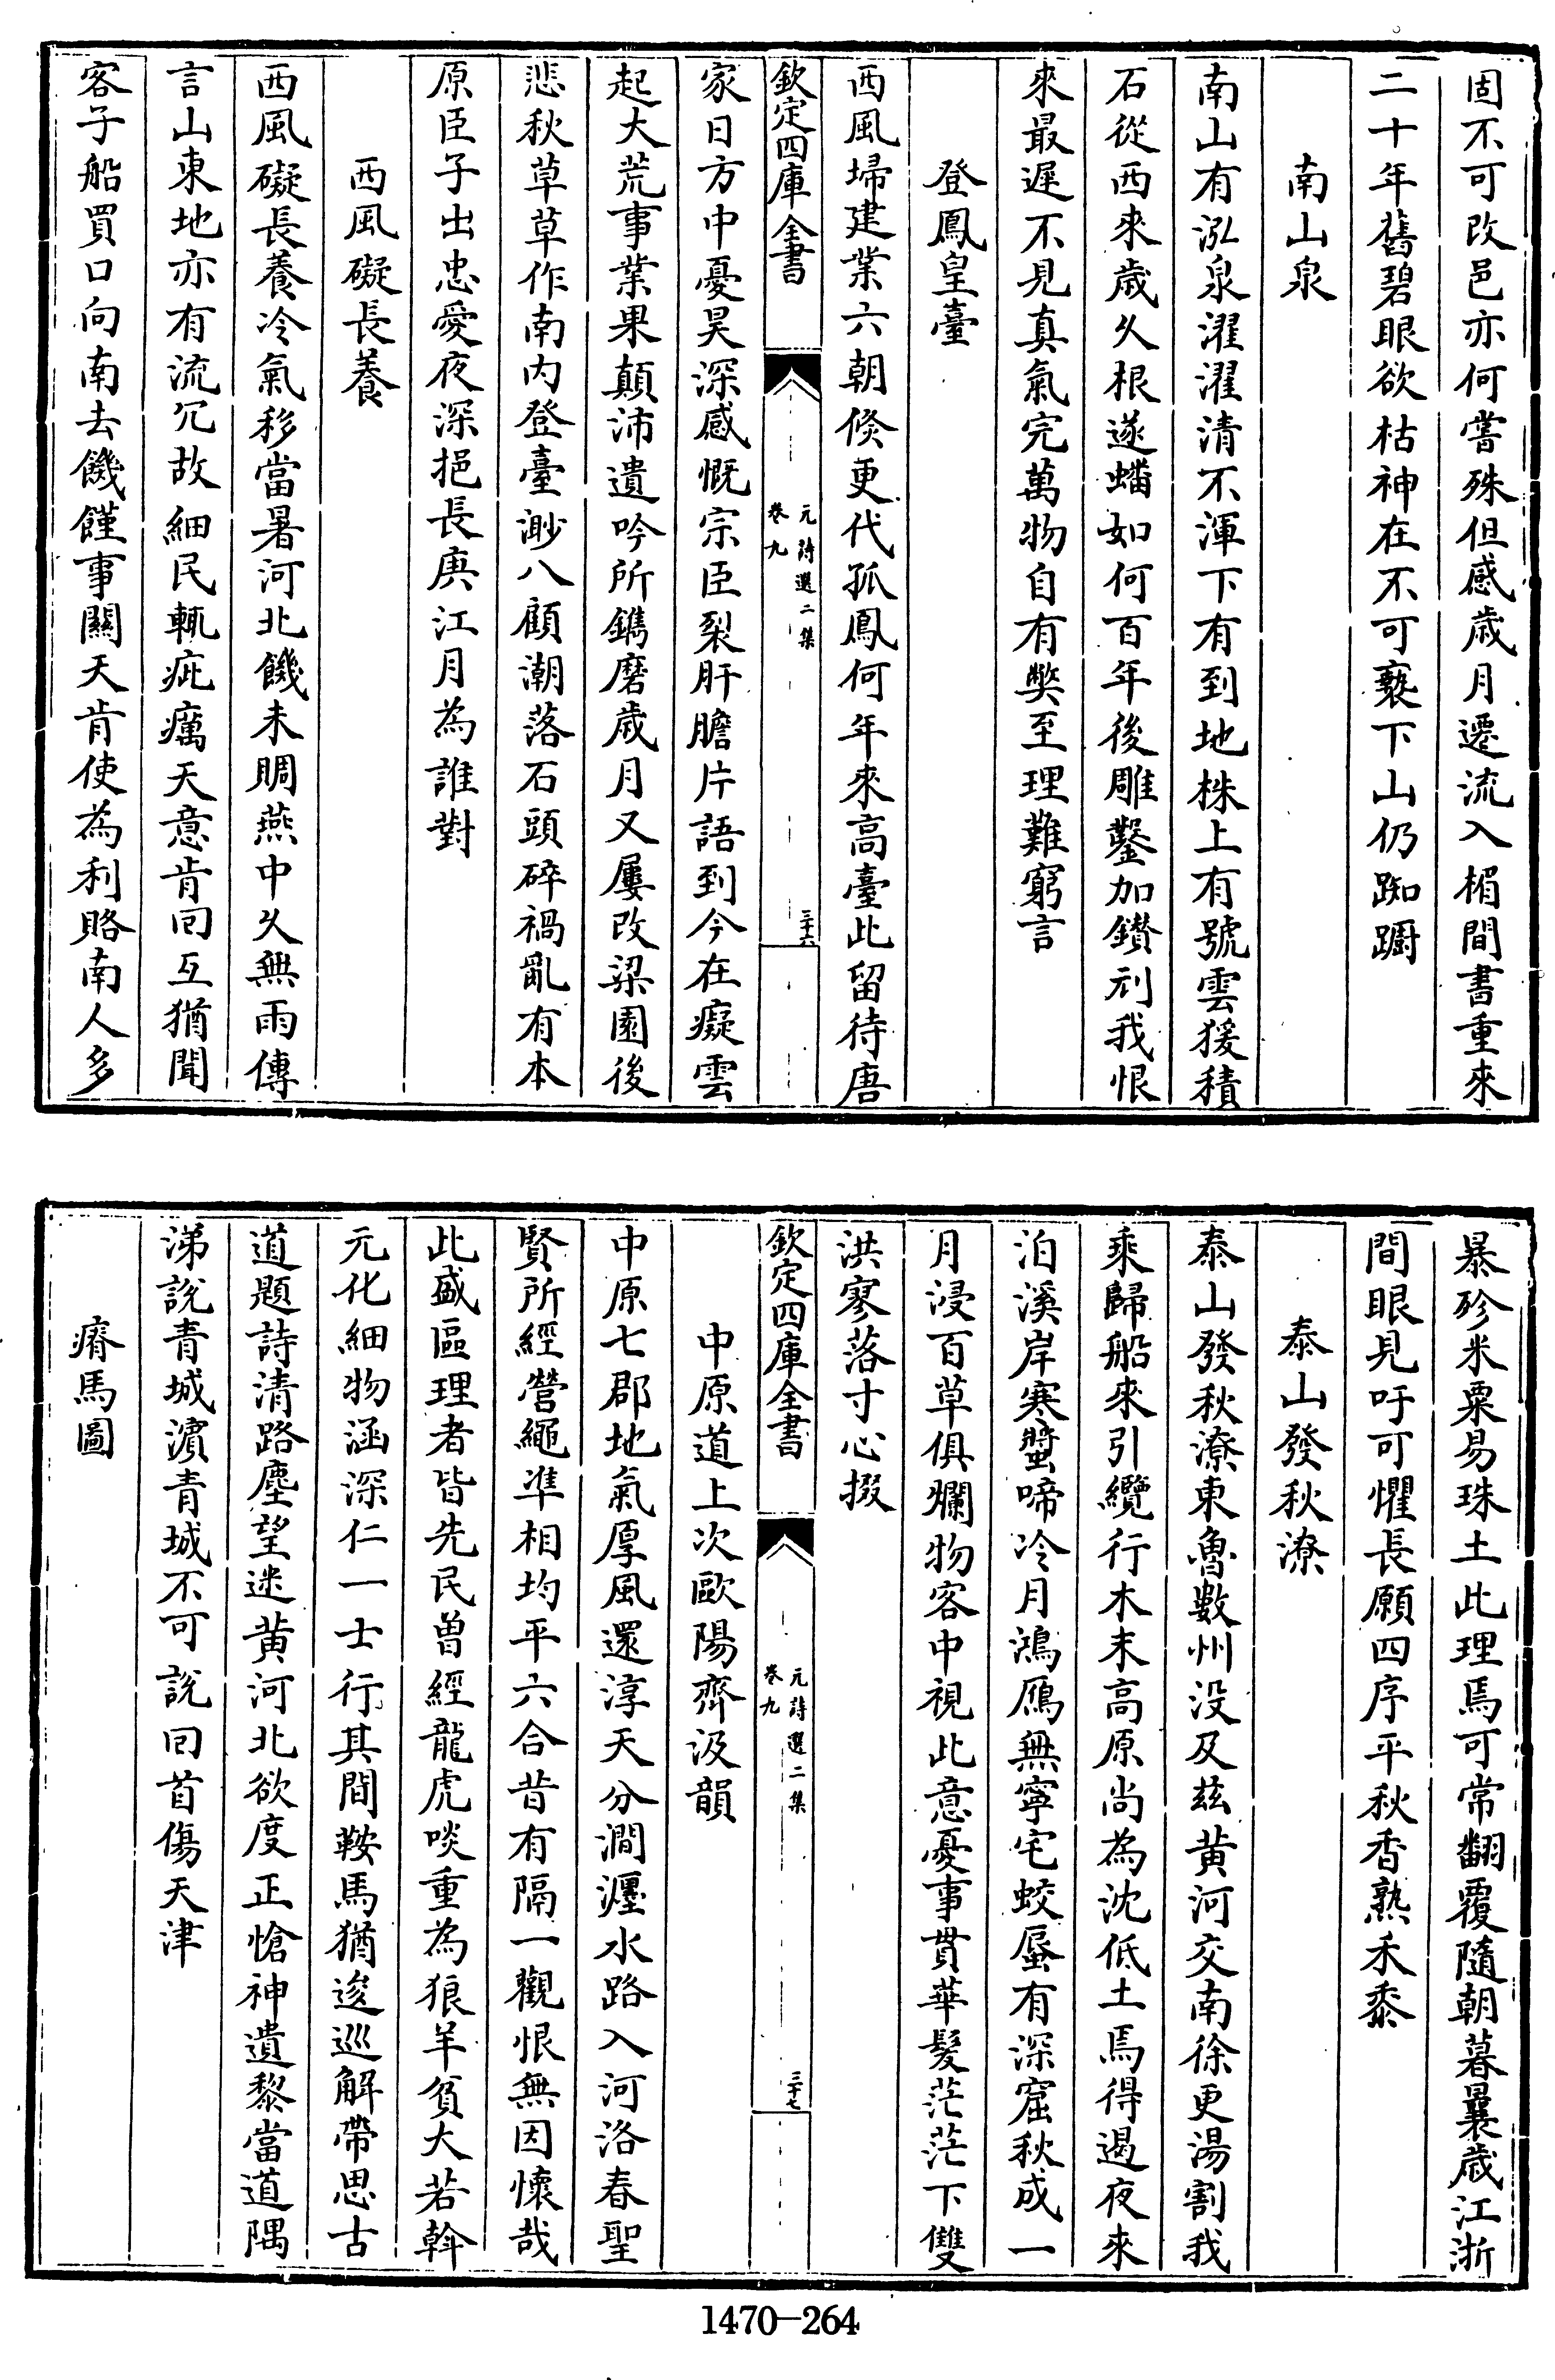 固不可改邑亦何嘗殊但感歳月遷流入楣間書重來
二十年舊碧眼欲枯神在不可褻下山仍踟蹰
南山泉
南山有泓泉濯濯清不渾下有到地株上有號雲猨積
石從西來歳久根遂蟠如何百年後雕鑿加鑚刓我恨
來最遲不見真氣完萬物自有獘至理難窮言
登鳳皇臺
西風埽建業六朝倐更代孤鳳何年來高臺此留待唐
欽定四庫全書
元詩選二集
卷九
三十六
家日方中憂昊深感慨宗臣裂肝膽片語到今在癡雲
起大荒事業果顛沛遺吟所鐫磨歳月又屢改梁園後
悲秋草草作南内登臺渺八顧潮落石頭碎禍亂有本
原臣子出忠愛夜深挹長庚江月為誰對
西風礙長養
西風礙長養冷氣移當暑河北饑未賙燕中久無雨傳
言山東地亦有流冗故細民輒疵癘天意肯囘互猶聞
客子船買口向南去饑饉事關天肯使為利賂南人多
暴殄米粟易珠土此理焉可常翻覆隨朝暮曩歳江浙
間眼見吁可懼長願四序平秋香熟禾黍
泰山發秋潦
泰山發秋潦東魯數州没及兹黄河交南徐更湯割我
乘歸船來引纜行木末高原尚為沈低土焉得遏夜來
泊溪岸寒螿啼冷月鴻鴈無寧宅蛟蜃有深窟秋成一
月浸百草俱爛物客中視此意憂事貫華髮茫茫下雙
洪寥落寸心掇
欽定四庫全書
元詩選二集
卷九
三十七
中原道上次歐陽齊汲韻
中原七郡地氣厚風還淳天分澗瀍水路入河洛春聖
賢所經營繩準相均平六合昔有隔一觀恨無因懷哉
此盛區理者皆先民曽經龍虎啖重為狼羊貧大若斡
元化細物涵深仁一士行其間鞍馬猶逡巡解帶思古
道題詩清路塵望迷黄河北欲度正愴神遺黎當道隅
涕說青城濵青城不可說囘首傷天津
瘠馬圖
1470—264